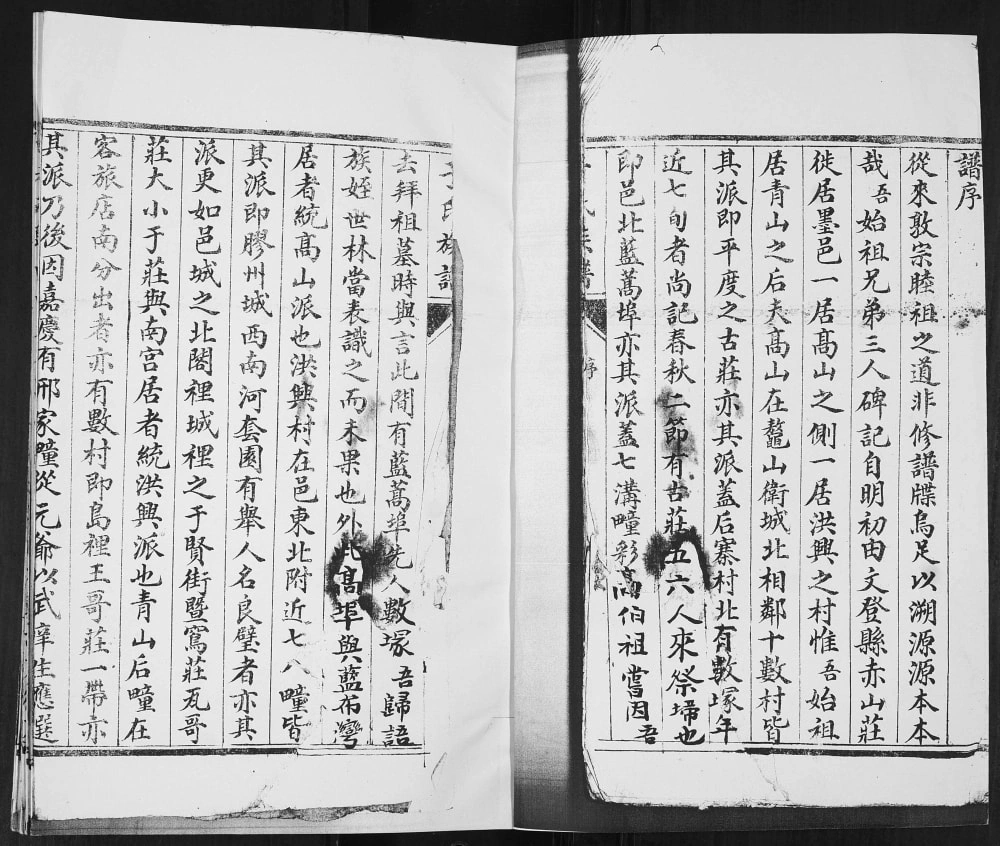 譜序
從來敦宗睦祖之道非修譜牒烏足以溯源源本本
哉吾始祖兄弟三人碑記自明初由文登縣赤山莊
徙居墨邑一居高山之側一居洪興之村惟吾始祖
居青山之后夫高山在鰲山衛城北相鄰十數村皆
其派即平度之古莊亦其派蓋后寨村北有數塚年
近七旬者尚記春秋二節有古莊五六人來祭埽也
即邑北藍蒿埠亦其派蓋七溝疃彩高伯祖嘗因吾
氏族譜
序
于氏族譜
去拜祖墓時與言此間有藍蒿埠先人數塚吾歸語
族姪世林當表識之而未果也外此高埠與藍布灣
居者統高山派也洪興村在邑東北附近七八疃皆
其派即膠州城西南河套園有舉人名良璧者亦其
派更如邑城之北閣裡城裡之于賢街暨窩莊瓦哥
莊大小于莊與南宮居者統洪興派也青山后疃在
客旅店南分出者亦有數村即島裡王哥莊一帶亦
其派乃後因嘉慶有邢家疃從元爺以武庠生應選